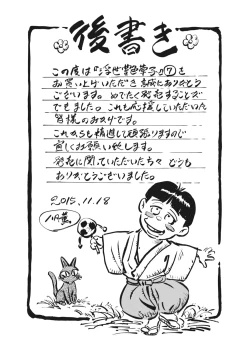 後書き
この度は『浮世艶草子』⑦を
お買い上げいただき誠にありがとう
ございます。めでたく発売することが
できました。これも応援していただいた
皆様のおかげです。
これからも精進して頑張りますので
宜しくお願い致します。
発売に関していただいた方々 どうも
ありがとうございました。
2015.11.18